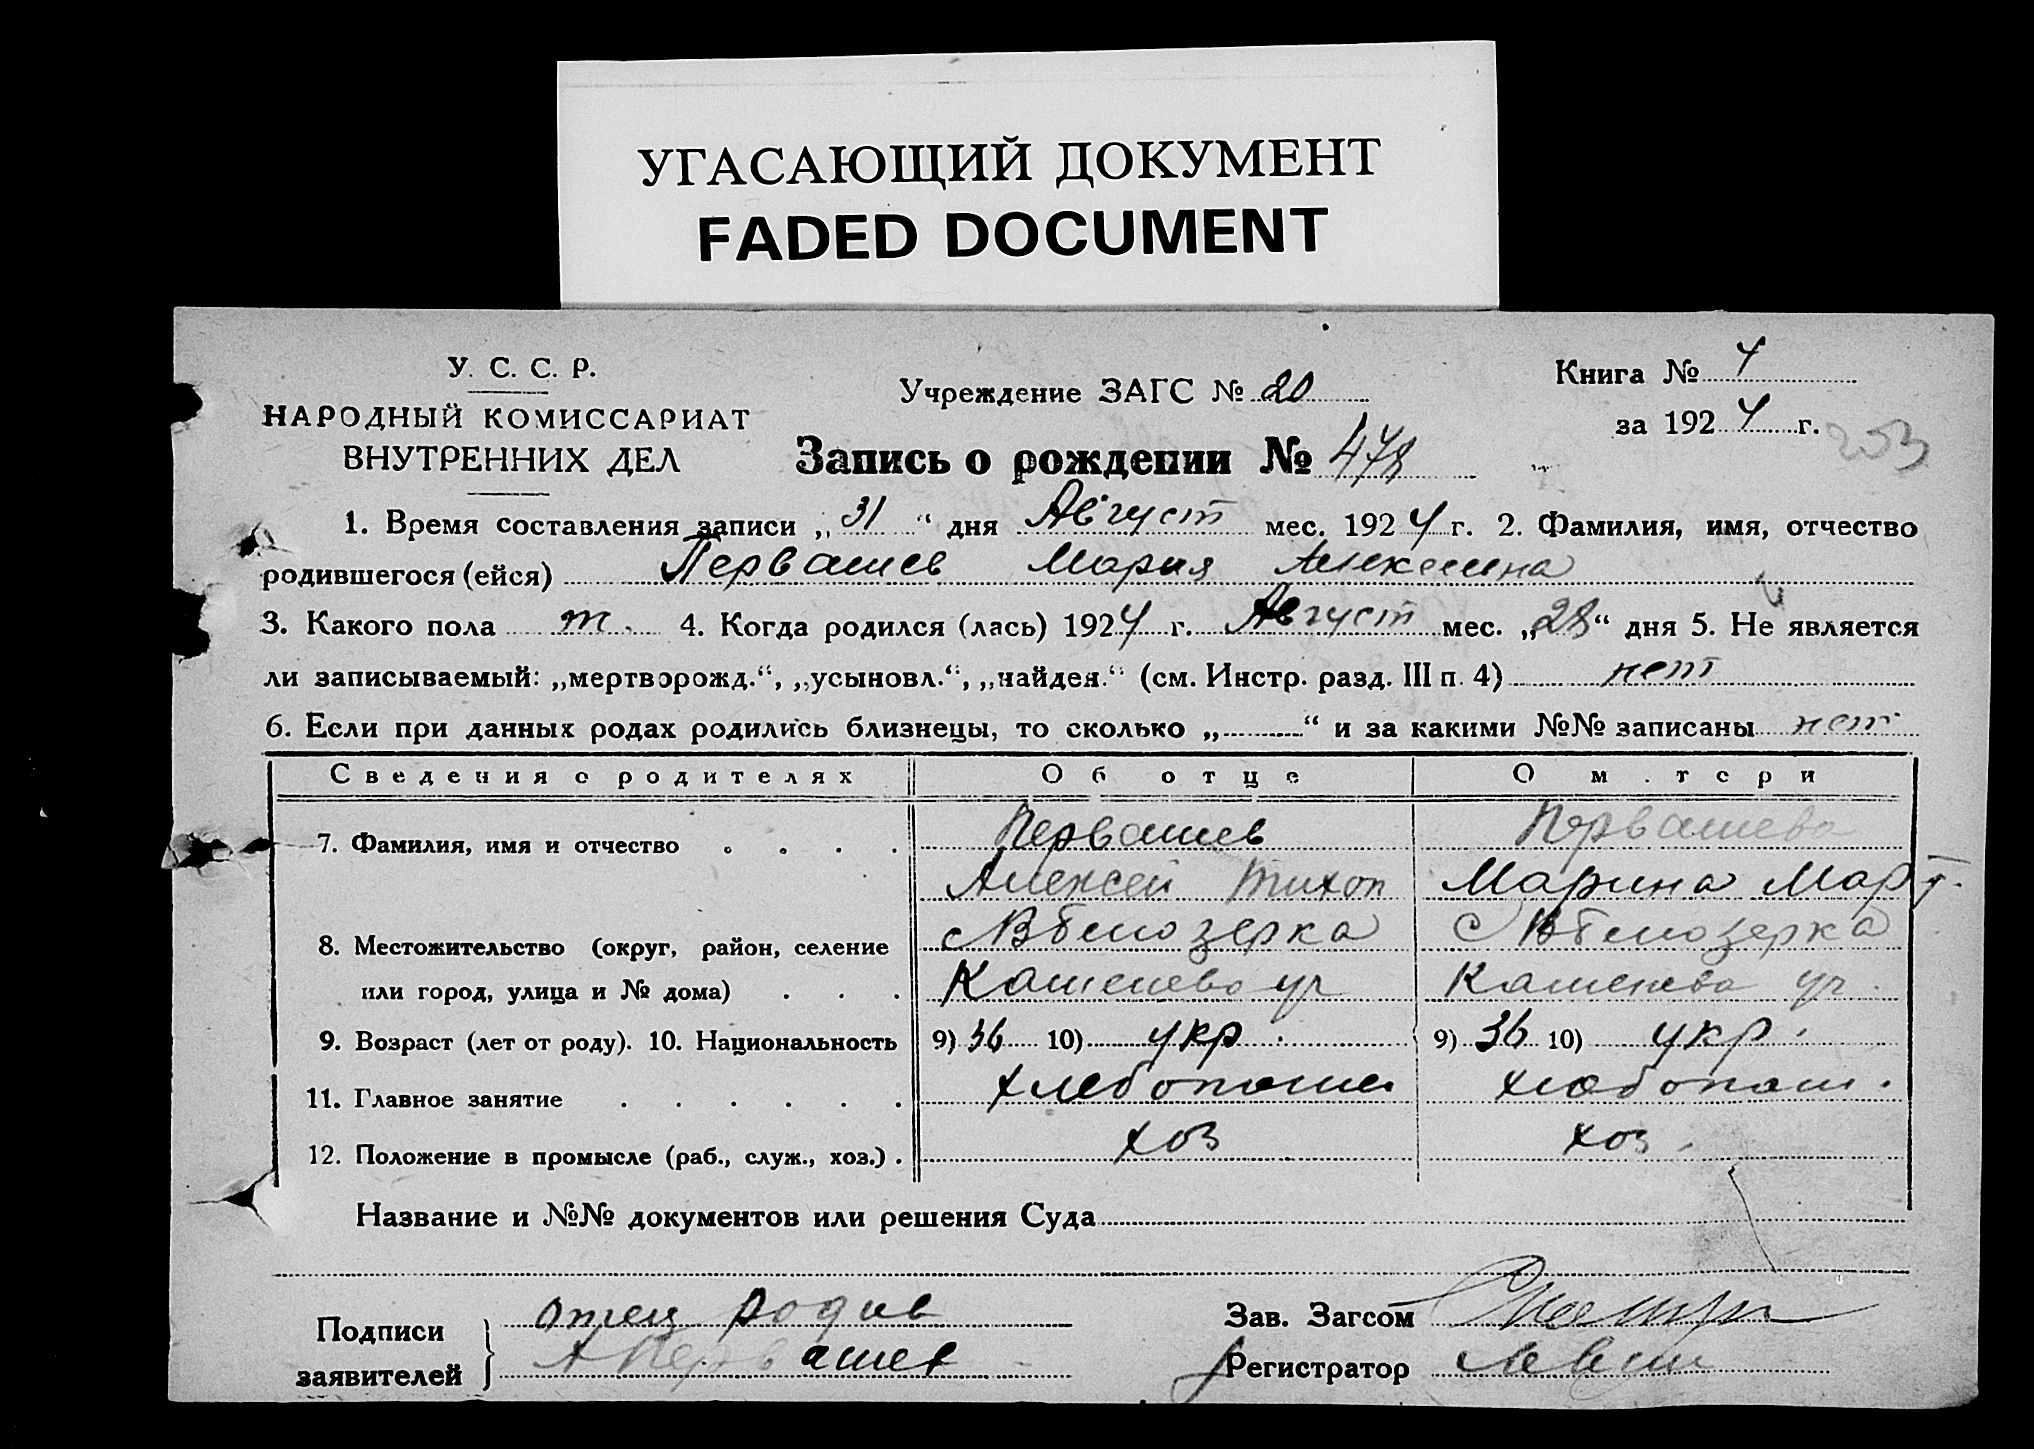 УГАСАЮЩИЙ ДОКУМЕНТ
FADED DOCUMENT
У. С. С. Р.
НАРОДНЫЙ КОМИССАРИАТ
ВНУТРЕННИХ ДЕЛ
Учреждение ЗАГС № 20
Книга № 4
за 1924 г.
253
Запись о рождении № 478
1. Время составления записи „31“ дня Август мес. 1924 г. 2. Фамилия, имя, отчество
родившегося (ейся) Первашев Мария
3. Какого пола 4. Когда родился (лась) 1924 г. Август мес. „28“ дня 5. Не является
ли записываемый: „мертворожд.“, „усыновл.“, „найден.“ (см. Инстр. разд. III п. 4) нет
6. Если при данных родах родились близнецы, то сколько „ “ и за какими №№ записаны нет
Сведения о родителях Об отце О м.тери
7. Фамилия, имя и отчество . . . . Первашев Первашева
Алексей Тихон Марина Март.
8. Местожительство (округ, район, селение с В Белозерка с В Белозерка
или город, улица и № дома) . . .
9. Возраст (лет от роду). 10. Национальность 9) 36 10) укр. 9) 36 10) укр.
11. Главное занятие . . . . . . хлебопаш.
12. Положение в промысле (раб., служ., хоз.) . хоз хоз.
Название и №№ документов или решения Суда
Подписи заявителей } отец
А Первашев
Зав. Загсом
Регистратор